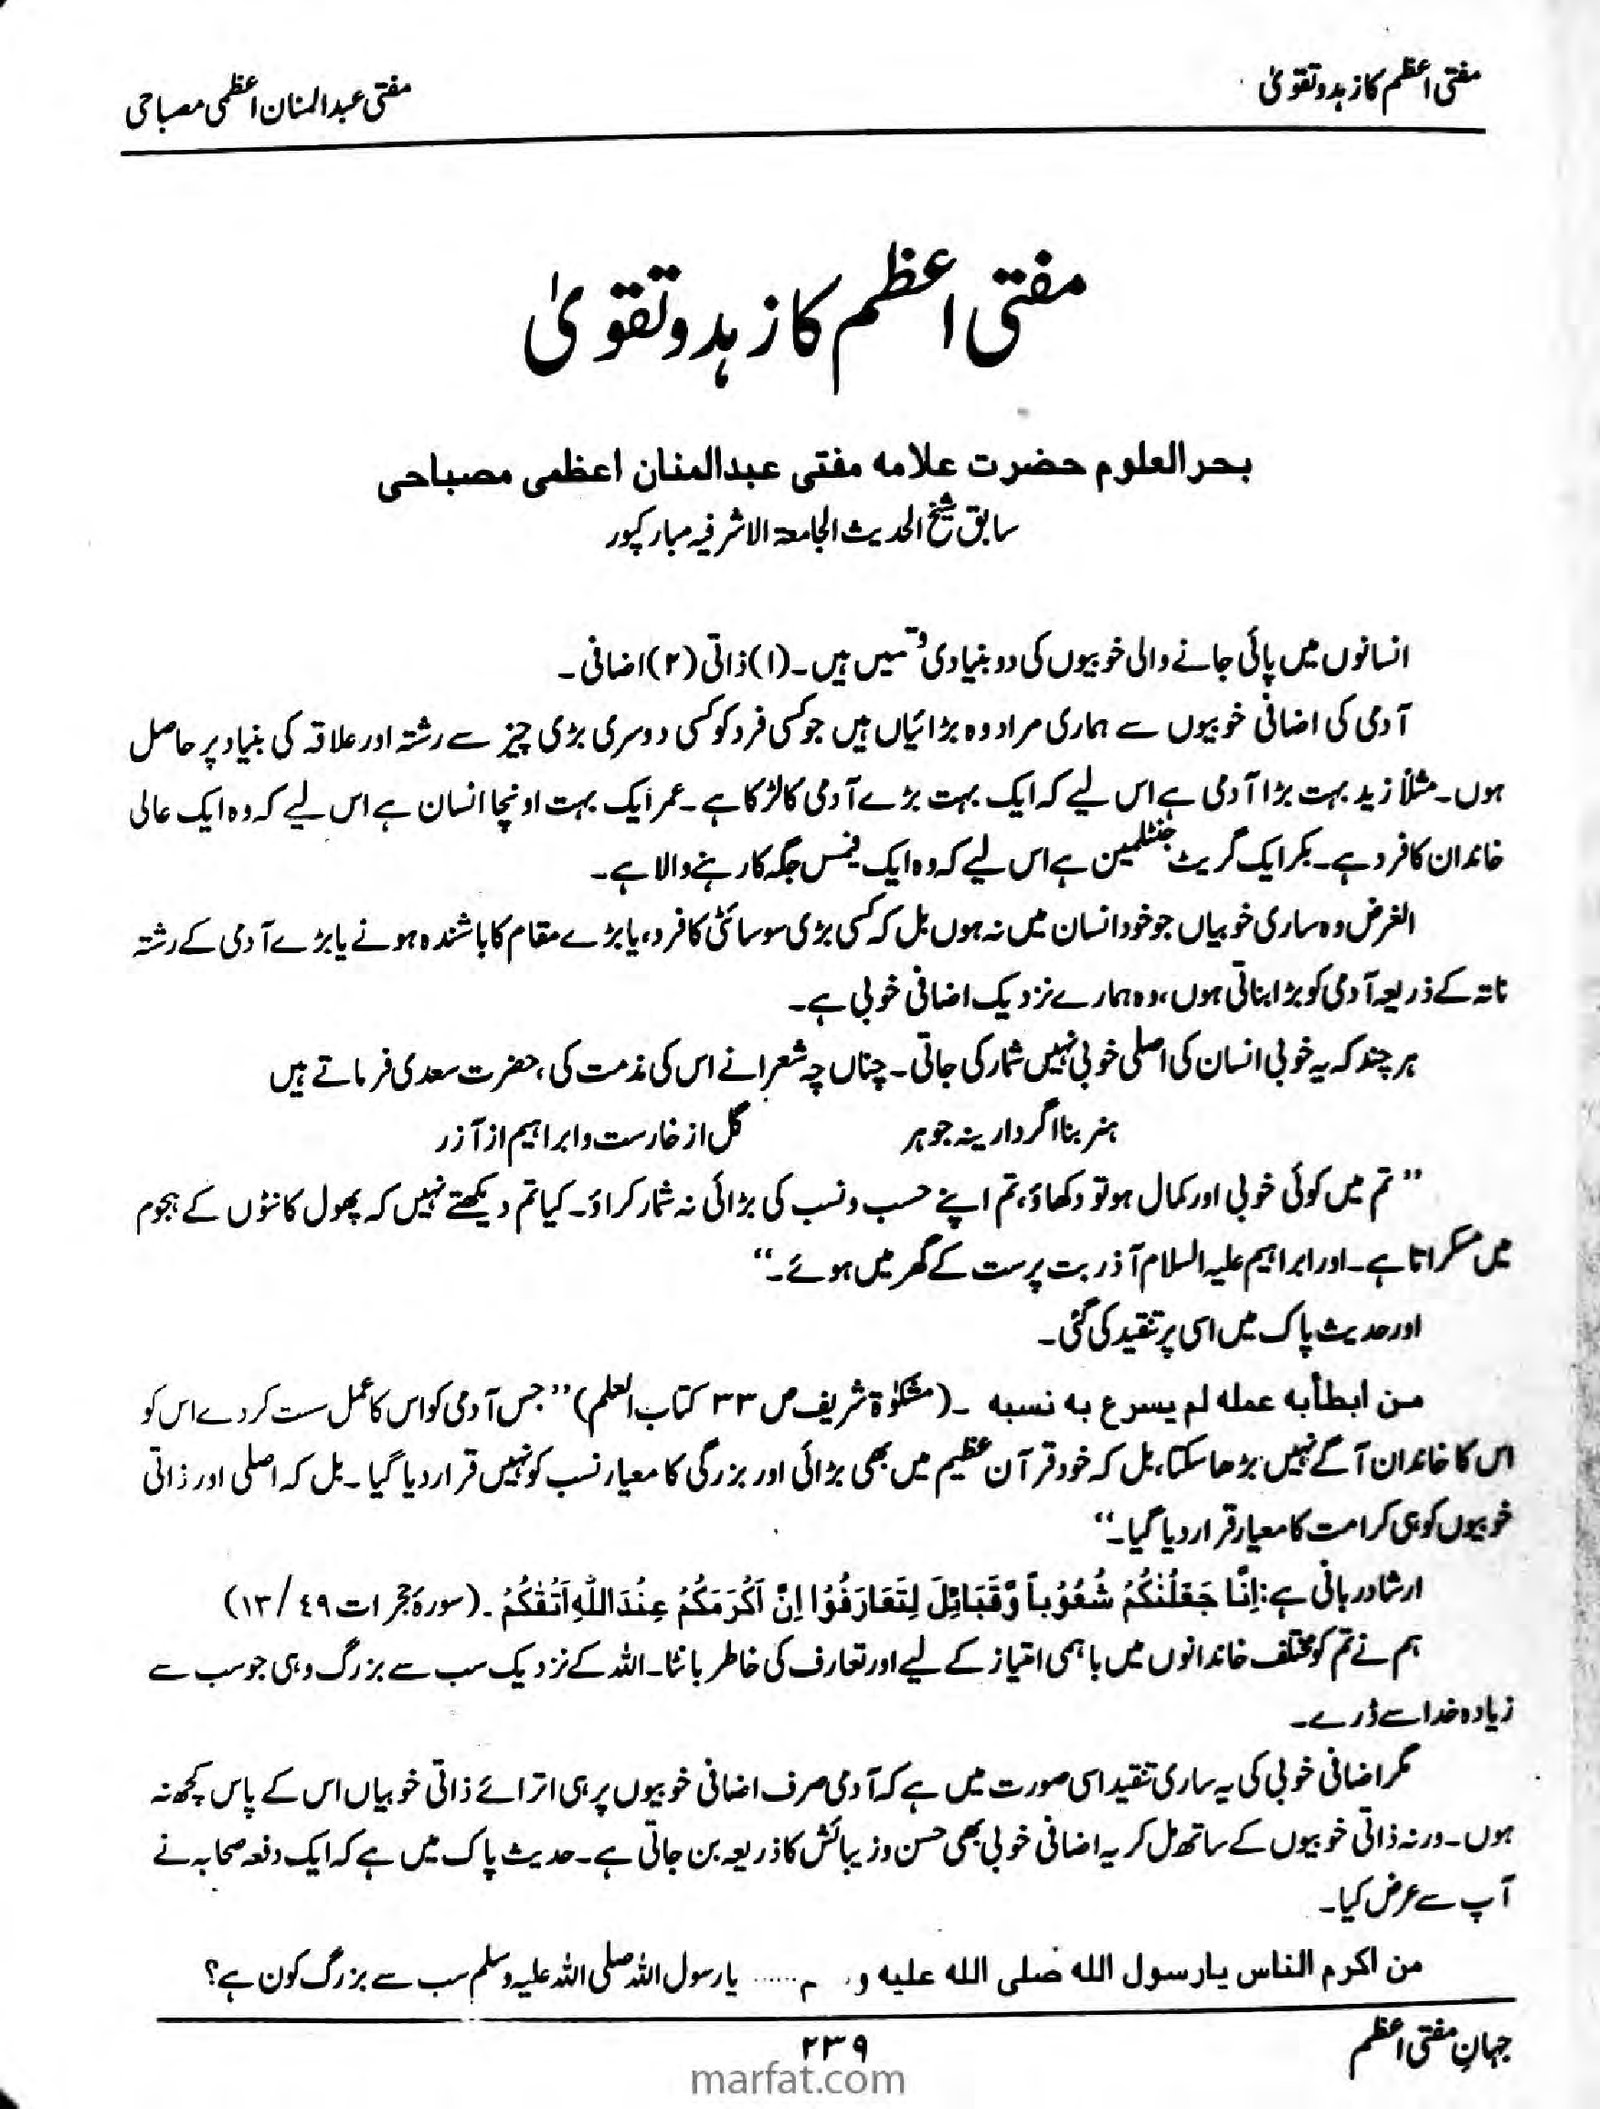 مفتی اعظم کا زہد و تقویٰ
مفتی عبدالمنان اعظمی مصباحی
مفتی اعظم کا زہد و تقویٰ
بحر العلوم حضرت علامہ مفتی عبدالمنان اعظمی مصباحی
سابق شیخ الحدیث الجامعۃ الاشرفیہ مبارکپور
انسانوں میں پائی جانے والی خوبیوں کی دو بنیادی قسمیں ہیں۔ (۱) ذاتی (۲) اضافی۔
آدمی کی اضافی خوبیوں سے ہماری مراد وہ بڑائیاں ہیں جو کسی فرد کو کسی دوسری بڑی چیز سے رشتہ اور علاقہ کی بنیاد پر حاصل
ہوں۔ مثلاً زید بہت بڑا آدمی ہے اس لیے کہ ایک بہت بڑے آدمی کا لڑکا ہے۔ عمر ایک بہت اونچا انسان ہے اس لیے کہ وہ ایک عالی
خاندان کا فرد ہے۔ بکر ایک گریٹ جنٹلمین ہے اس لیے کہ وہ ایک فیمس جگہ کا رہنے والا ہے۔
الغرض وہ ساری خوبیاں جو خود انسان میں نہ ہوں بل کہ کسی بڑی سوسائٹی کا فرد، یا بڑے مقام کا باشندہ ہونے یا بڑے آدمی کے رشتہ
ناتہ کے ذریعہ آدمی کو بڑا بناتی ہوں، وہ ہمارے نزدیک اضافی خوبی ہے۔
ہر چند کہ یہ خوبی انسان کی اصلی خوبی نہیں شمار کی جاتی۔ چناں چہ شعرا نے اس کی مذمت کی، حضرت سعدی فرماتے ہیں
ہنر بنما اگر داری نہ جوہر گل از خارست و ابراہیم از آذر
”تم میں کوئی خوبی اور کمال ہو تو دکھاؤ، تم اپنے حسب و نسب کی بڑائی نہ شمار کراؤ۔ کیا تم دیکھتے نہیں کہ پھول کانٹوں کے ہجوم
میں مسکراتا ہے۔ اور ابراہیم علیہ السلام آذر بت پرست کے گھر میں ہوئے۔“
اور حدیث پاک میں اسی پر تنقید کی گئی۔
من ابطأ به عمله لم يسرع به نسبه ۔ (مشکوٰۃ شریف ص ۳۳ کتاب العلم) ”جس آدمی کو اس کا عمل سست کر دے اس کو
اس کا خاندان آگے نہیں بڑھا سکتا، بل کہ خود قرآن عظیم میں بھی بڑائی اور بزرگی کا معیار نسب کو نہیں قرار دیا گیا۔ بل کہ اصلی اور ذاتی
خوبیوں کو ہی کرامت کا معیار قرار دیا گیا۔“
ارشاد ربانی ہے: اِنَّا جَعَلْنٰكُمْ شُعُوْباً وَّقَبَائِلَ لِتَعَارَفُوْا اِنَّ اَكْرَمَكُمْ عِنْدَاللّٰهِ اَتْقٰكُمْ ۔ (سورۂ حجرات ۴۹/ ۱۳)
ہم نے تم کو مختلف خاندانوں میں باہمی امتیاز کے لیے اور تعارف کی خاطر بانٹا۔ اللہ کے نزدیک سب سے بزرگ وہی جو سب سے
زیادہ خدا سے ڈرے۔
مگر اضافی خوبی کی یہ ساری تنقید اسی صورت میں ہے کہ آدمی صرف اضافی خوبیوں پر ہی اترائے ذاتی خوبیاں اس کے پاس کچھ نہ
ہوں۔ ورنہ ذاتی خوبیوں کے ساتھ مل کر یہ اضافی خوبی بھی حسن و زیبائش کا ذریعہ بن جاتی ہے۔ حدیث پاک میں ہے کہ ایک دفعہ صحابہ نے
آپ سے عرض کیا۔
من اكرم الناس يارسول الله صلى الله عليه و م...... یا رسول اللہ صلی اللہ علیہ وسلم سب سے بزرگ کون ہے؟
جہانِ مفتی اعظم
۲۳۹
marfat.com